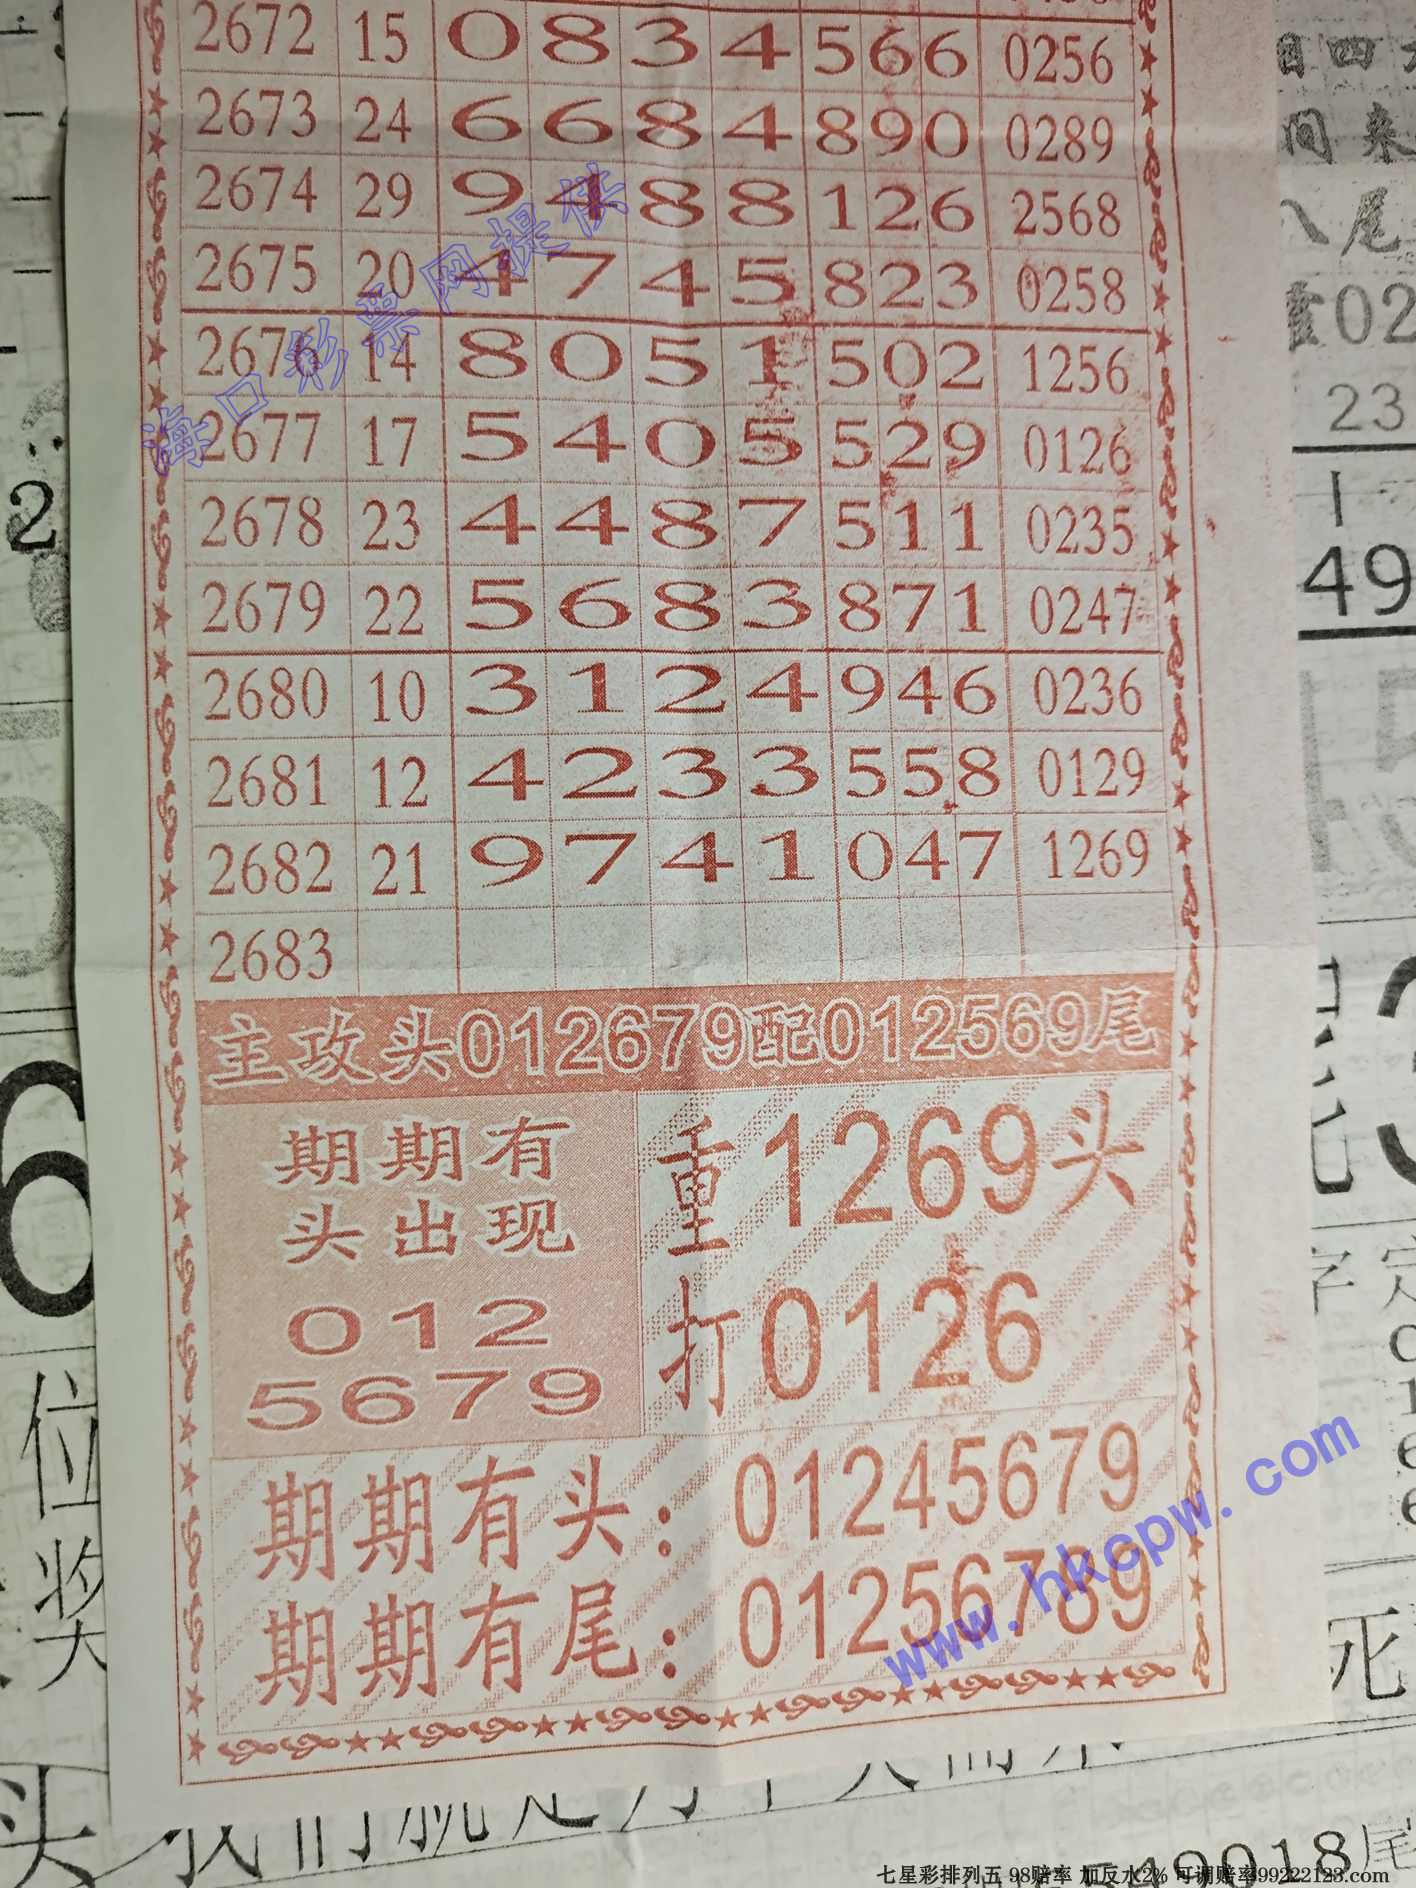 2672 15 0 8 3 4 5 6 6 0256
2673 24 6 6 8 4 8 9 0 0289
2674 29 9 4 8 8 1 2 6 2568
2675 20 4 7 4 5 8 2 3 0258
2676 14 8 0 5 1 5 0 2 1256
2677 17 5 4 0 5 5 2 9 0126
2678 23 4 4 8 7 5 1 1 0235
2679 22 5 6 8 3 8 7 1 0247
2680 10 3 1 2 4 9 4 6 0236
2681 12 4 2 3 3 5 5 8 0129
2682 21 9 7 4 1 0 4 7 1269
2683
主攻头012679配012569尾
期期有
头出现
012
5679
重1269头
打0126
期期有头：01245679
期期有尾：01256789
海口彩票网提供
www.hkcpw.com
四
间来
八尾
重02
23
49
2
6
位
奖
字定
死
头我们就是为
549018尾
七星彩排列五 98赔率 加反水2% 可调赔率99222123.com